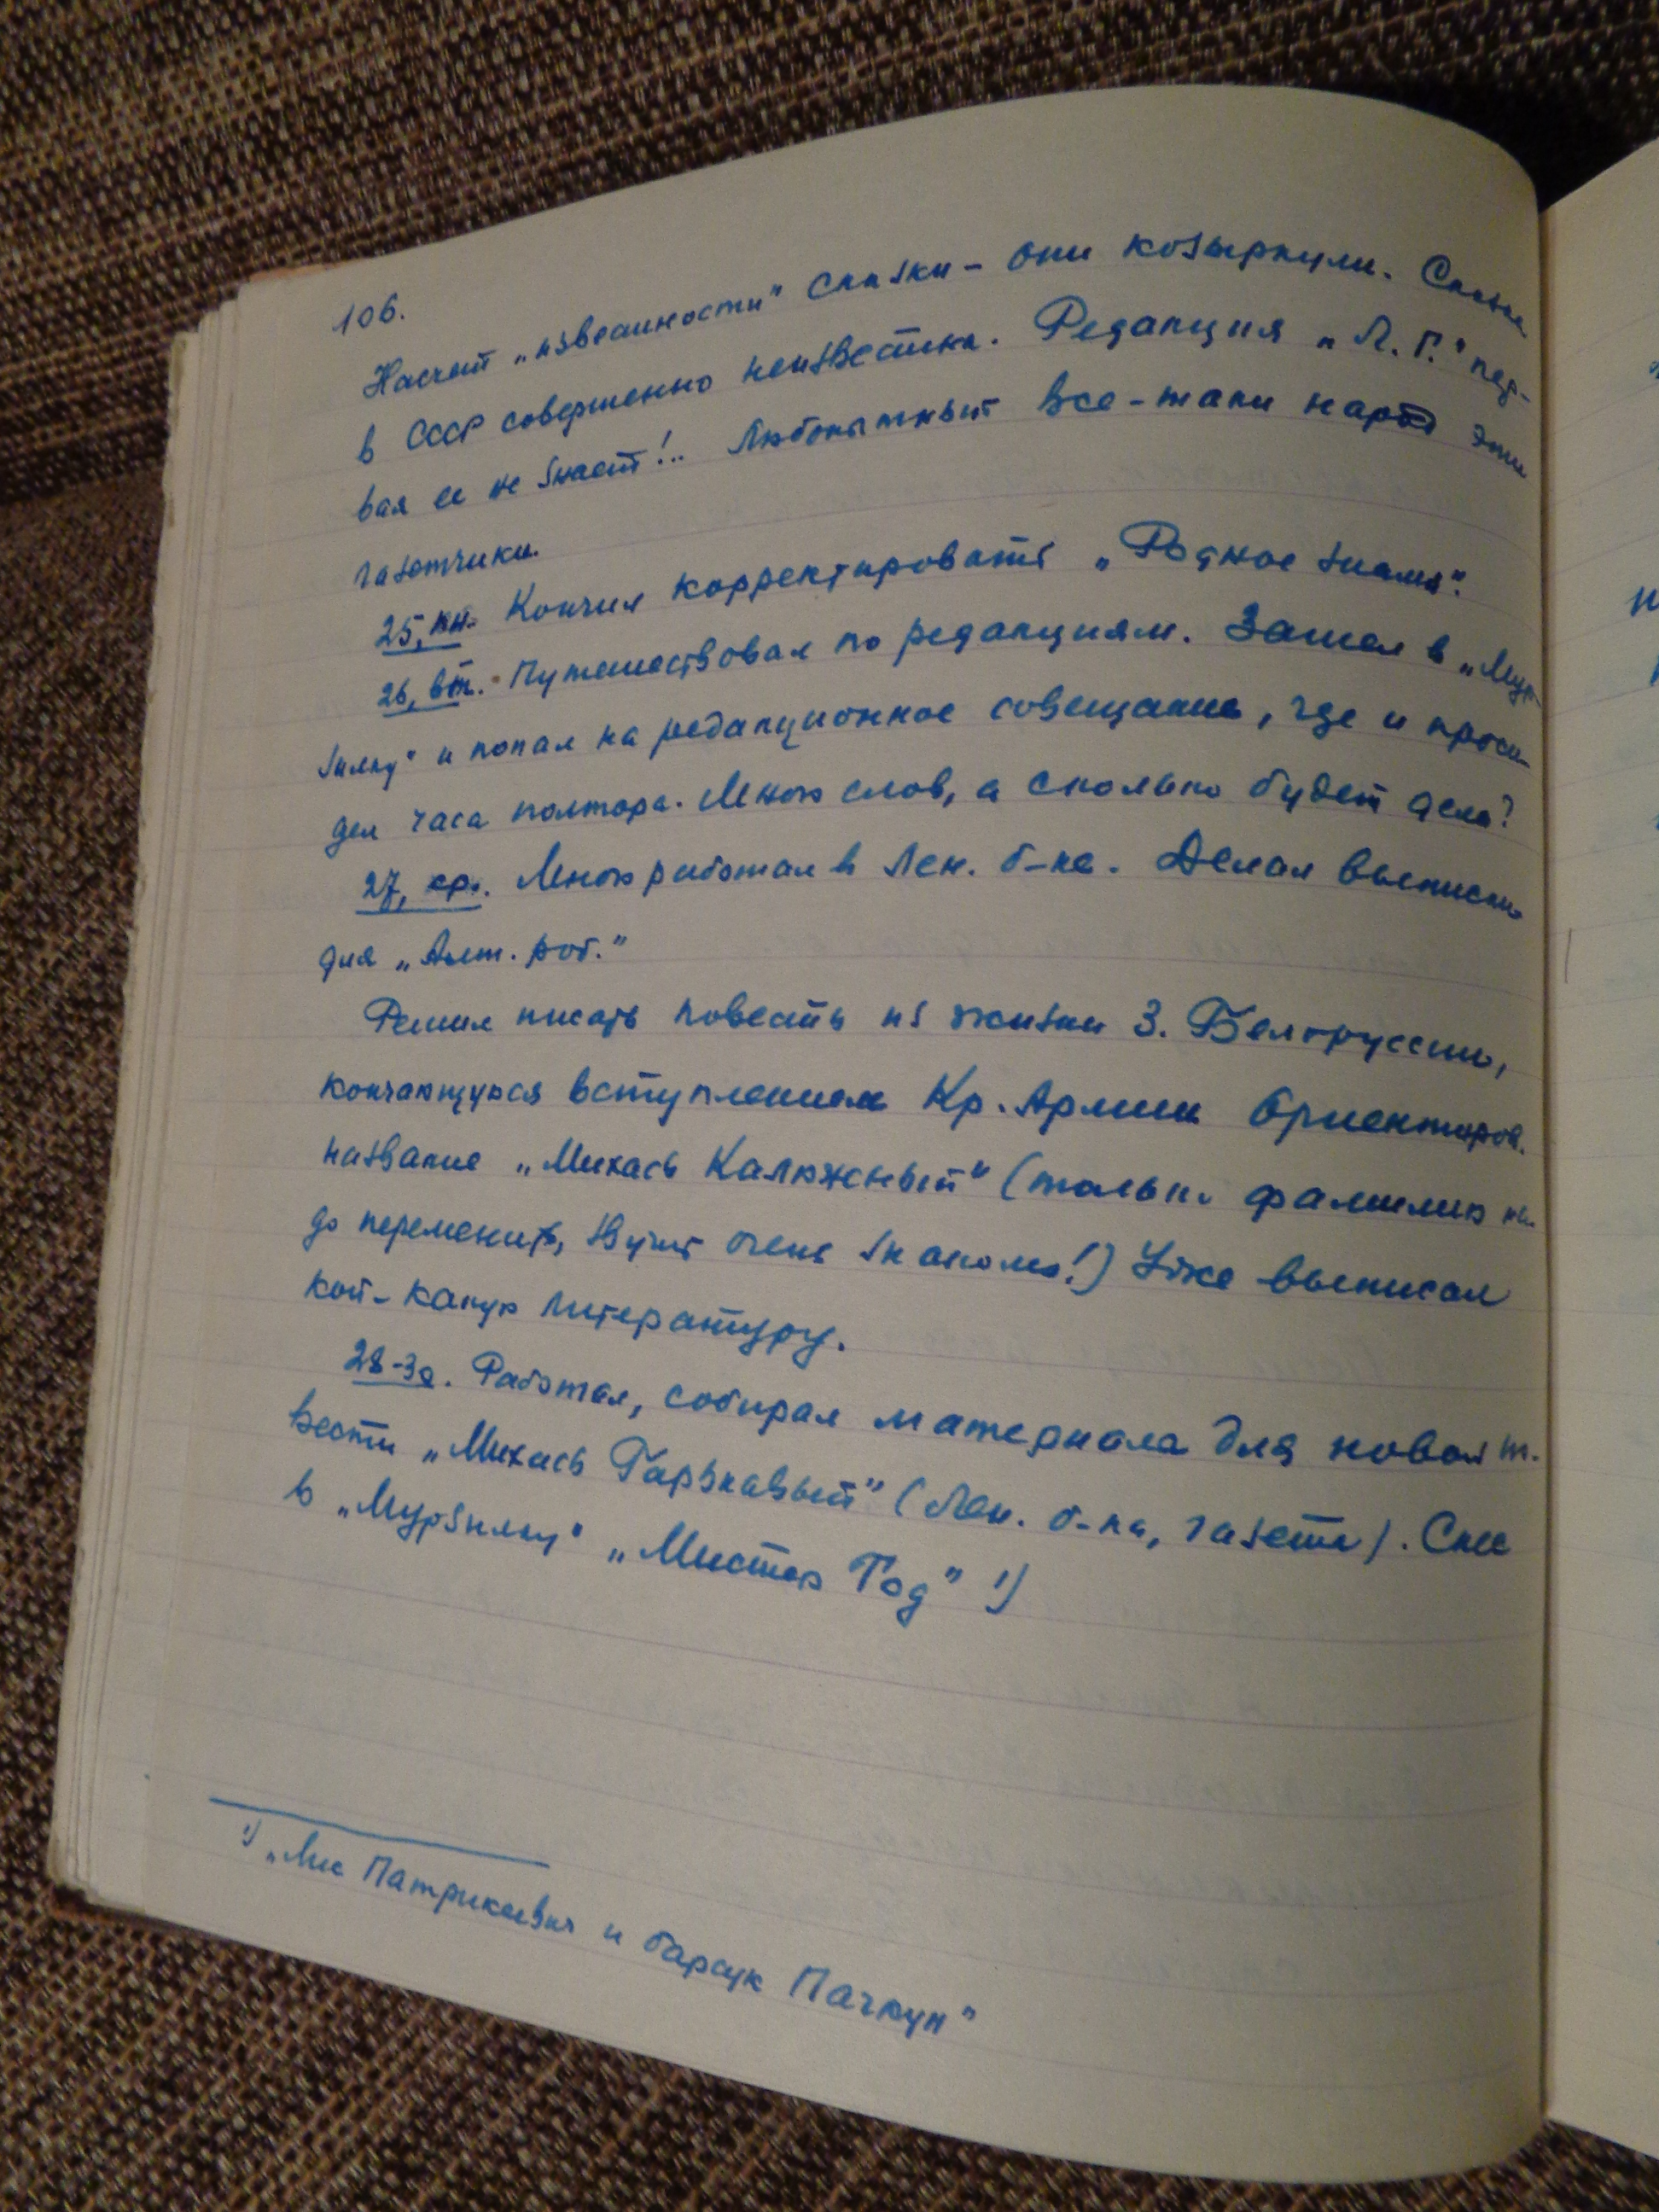 106.
Насчет „известности" сказки – они козырнули. Сказка
в СССР совершенно неизвестна. Редакция „Л. Г." пер-
вая ее не знает!.. Любопытный все-таки народ эти
газетчики.
25, пн. Кончил корректировать „Родное знамя".
26, вт. Путешествовал по редакциям. Зашел в „Мур-
зилку" и попал на редакционное совещание, где и проси-
дел часа полтора. Много слов, а сколько будет дела?
27, ср. Много работал в Лен. б-ке. Делал выписки
для „Алт. роб."
Решил писать повесть из жизни З. Белоруссии,
кончающуюся вступлением Кр. Армии Ориентиров.
название „Михась Калюжный" (только фамилию на-
до переменить, звучит очень знакомо!) Уже выписал
кой-какую литературу.
28-30. Работал, собирал материала для новой по-
вести „Михась Гарькавый" (Лен. б-ка, газеты). Снес
в „Мурзилку" „Мистер Тод" ¹)
¹) „Лис Патрикеевич и барсук Пачкун"